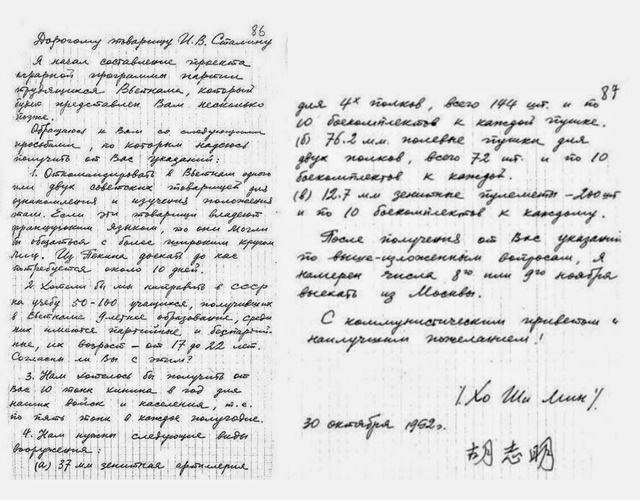 86
Дорогому товарищу И.В. Сталину
Я начал составление проекта
аграрной программы партии
трудящихся Вьетнама, который
будет представлен Вам несколько
позже.
Обращаюсь к Вам со следующими
просьбами, по которым надеюсь
получить от Вас указания:
1. Откомандировать в Вьетнам одного
или двух советских товарищей для
ознакомления и изучения положения
там. Если эти товарищи владеют
французским языком, то они могли
бы общаться с более широким кругом
лиц. Из Пекина доехать до нас
потребуется около 10 дней.
2. Хотели бы мы направить в СССР
на учебу 50-100 учащихся, получивших
в Вьетнаме 9летнее образование, среди
них имеются партийные и беспартий-
ные, их возраст - от 17 до 22 лет.
Согласны ли Вы с этим?
3. Нам хотелось бы получить от
Вас 10 тонн хинина в год для
наших войск и населения, т.е.
по пять тонн в каждое полугодие.
4. Нам нужны следующие виды
вооружения:
(а) 37 мм зенитная артиллерия
87
для 4х полков, всего 144 шт. и по
10 боекомплектов к каждой пушке.
(б) 76.2 м.м. полевые пушки для
двух полков, всего 72 шт. и по 10
боекомплектов к каждой.
(в) 12.7 мм зенитные пулеметы - 200 шт
и по 10 боекомплектов к каждому.
После получения от Вас указаний
по выше-изложенным вопросам, я
намерен числа 8го или 9го ноября
выехать из Москвы.
С коммунистическим приветом и
наилучшим пожеланием!
/Хо Ши Мин/
30 октября 1952г.
胡志明